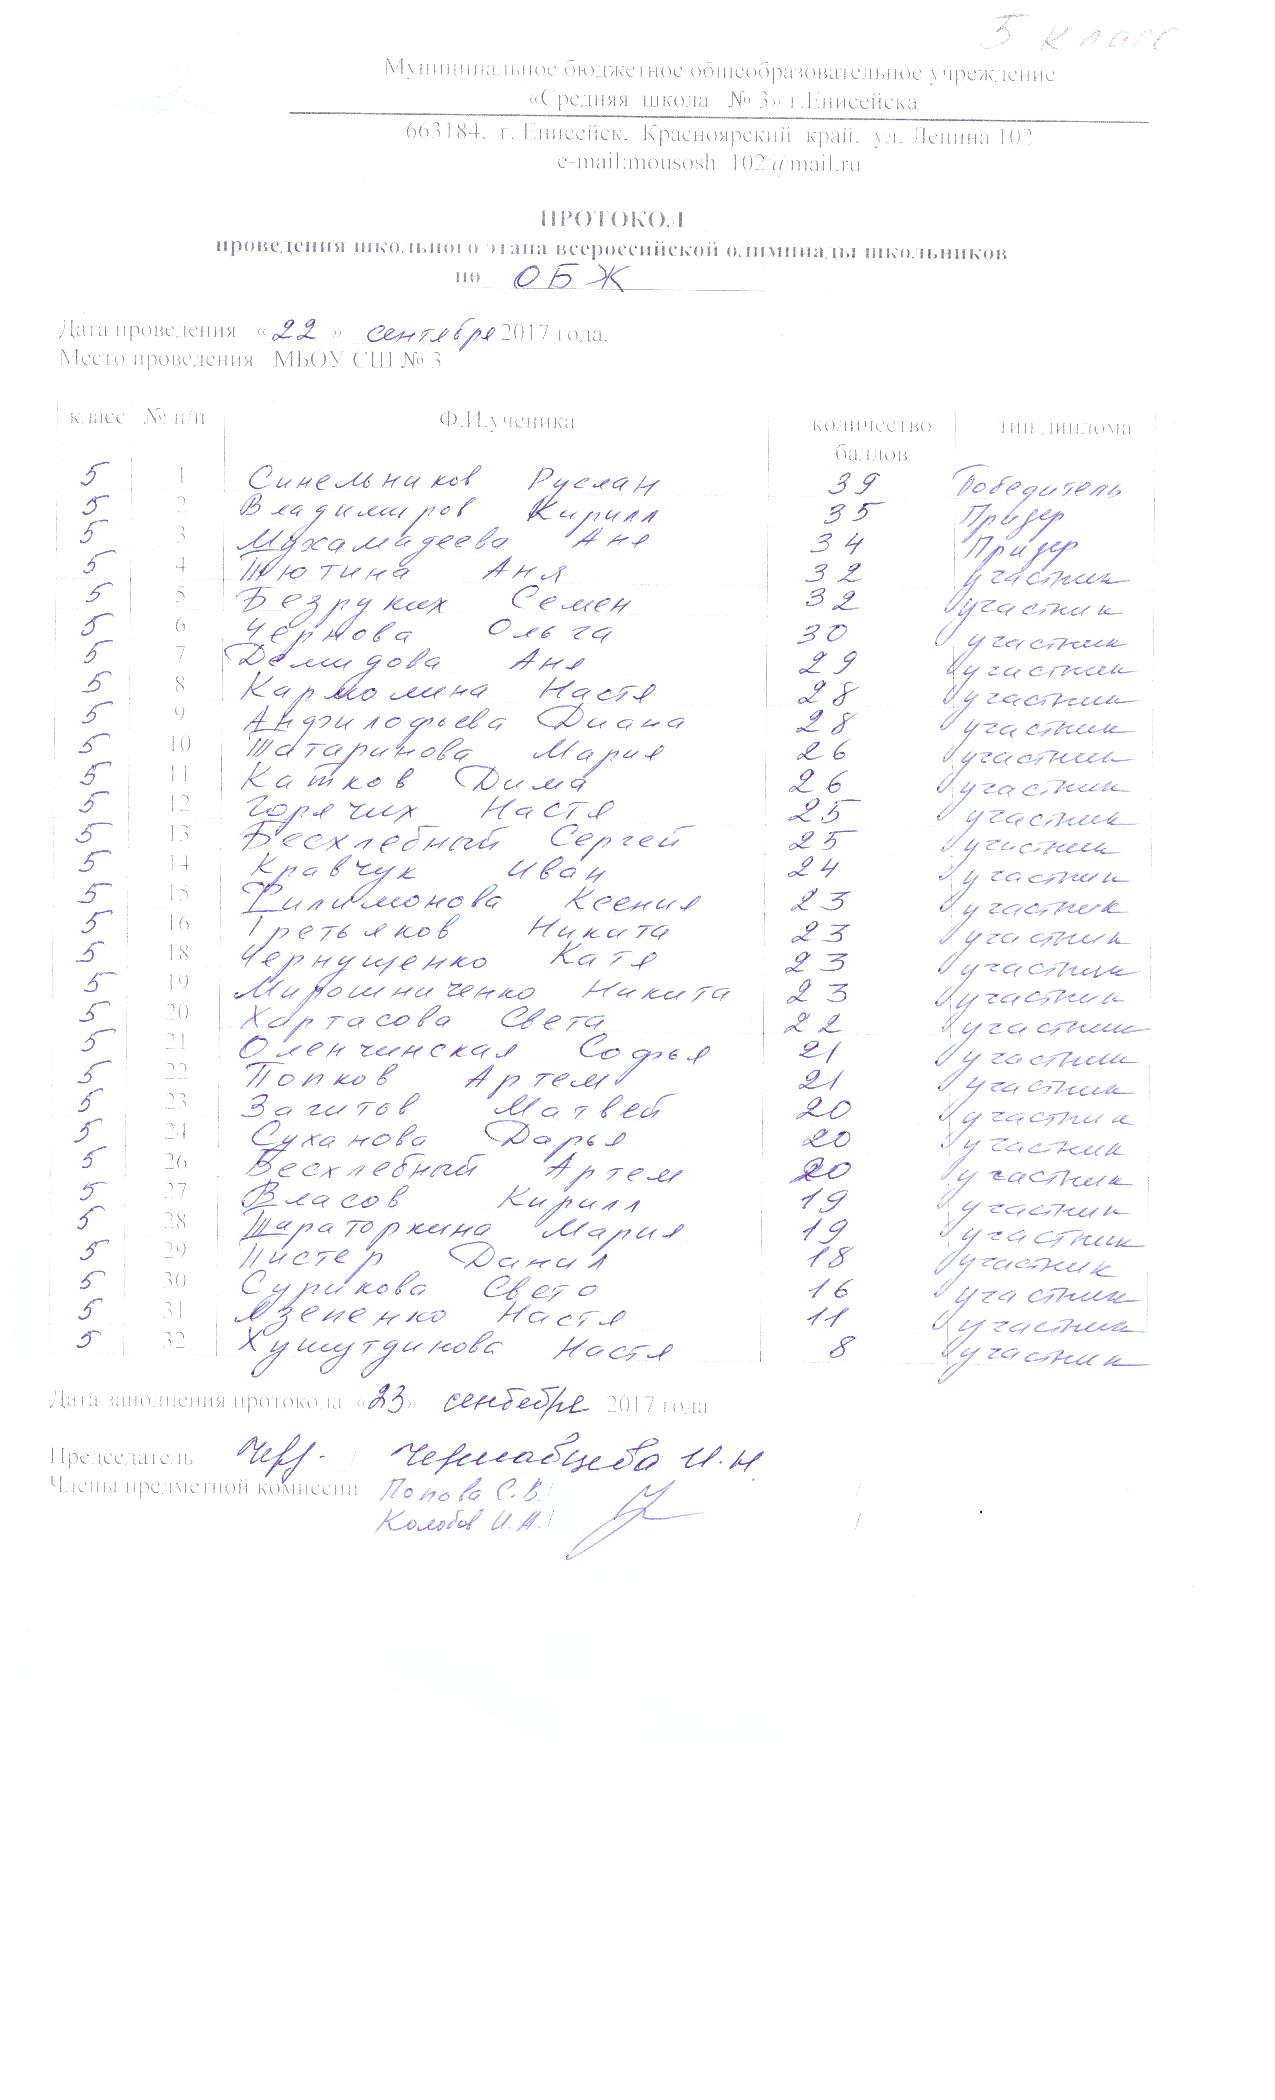 5 класс
Муниципальное бюджетное общеобразовательное учреждение
«Средняя школа № 3» г.Енисейска
663184, г. Енисейск, Красноярский край, ул. Ленина 102
e-mail:mousosh_102@mail.ru
ПРОТОКОЛ
проведения школьного этапа всероссийской олимпиады школьников
по ОБЖ
Дата проведения «22» сентября 2017 года.
Место проведения МБОУ СШ № 3
класс № п/п Ф.И.ученика количество баллов тип диплома
5 1 Синельников Руслан 39 Победитель
5 2 Владимиров Кирилл 35 Призер
5 3 Мухамадеева Аня 34 Призер
5 4 Тютина Аня 32 участник
5 5 Безруких Семен 32 участник
5 6 Чернова Ольга 30 участник
5 7 Демидова Аня 29 участник
5 8 Кармолина Настя 28 участник
5 9 Анфилофьева Диана 28 участник
5 10 Татаринова Мария 26 участник
5 11 Катков Дима 26 участник
5 12 Горячих Настя 25 участник
5 13 Бесхлебный Сергей 25 участник
5 14 Кравчук Иван 24 участник
5 15 Филимонова Ксения 23 участник
5 16 Третьяков Никита 23 участник
5 18 Чернущенко Катя 23 участник
5 19 Мирошниченко Никита 23 участник
5 20 Хартасова Света 22 участник
5 21 Оленчинская Софья 21 участник
5 22 Попков Артем 21 участник
5 23 Загитов Матвей 20 участник
5 24 Суханова Дарья 20 участник
5 26 Бесхлебный Артем 20 участник
5 27 Власов Кирилл 19 участник
5 28 Тараторкина Мария 19 участник
5 29 Пистер Данил 18 участник
5 30 Сурикова Свето 16 участник
5 31 Язепенко Настя 11 участник
5 32 Хушутдинова Настя 8 участник
Дата заполнения протокола «23» 2017 года
Председатель / И.Н.
Члены предметной комиссии Попова С.В./ /
Колобов И.А./ /